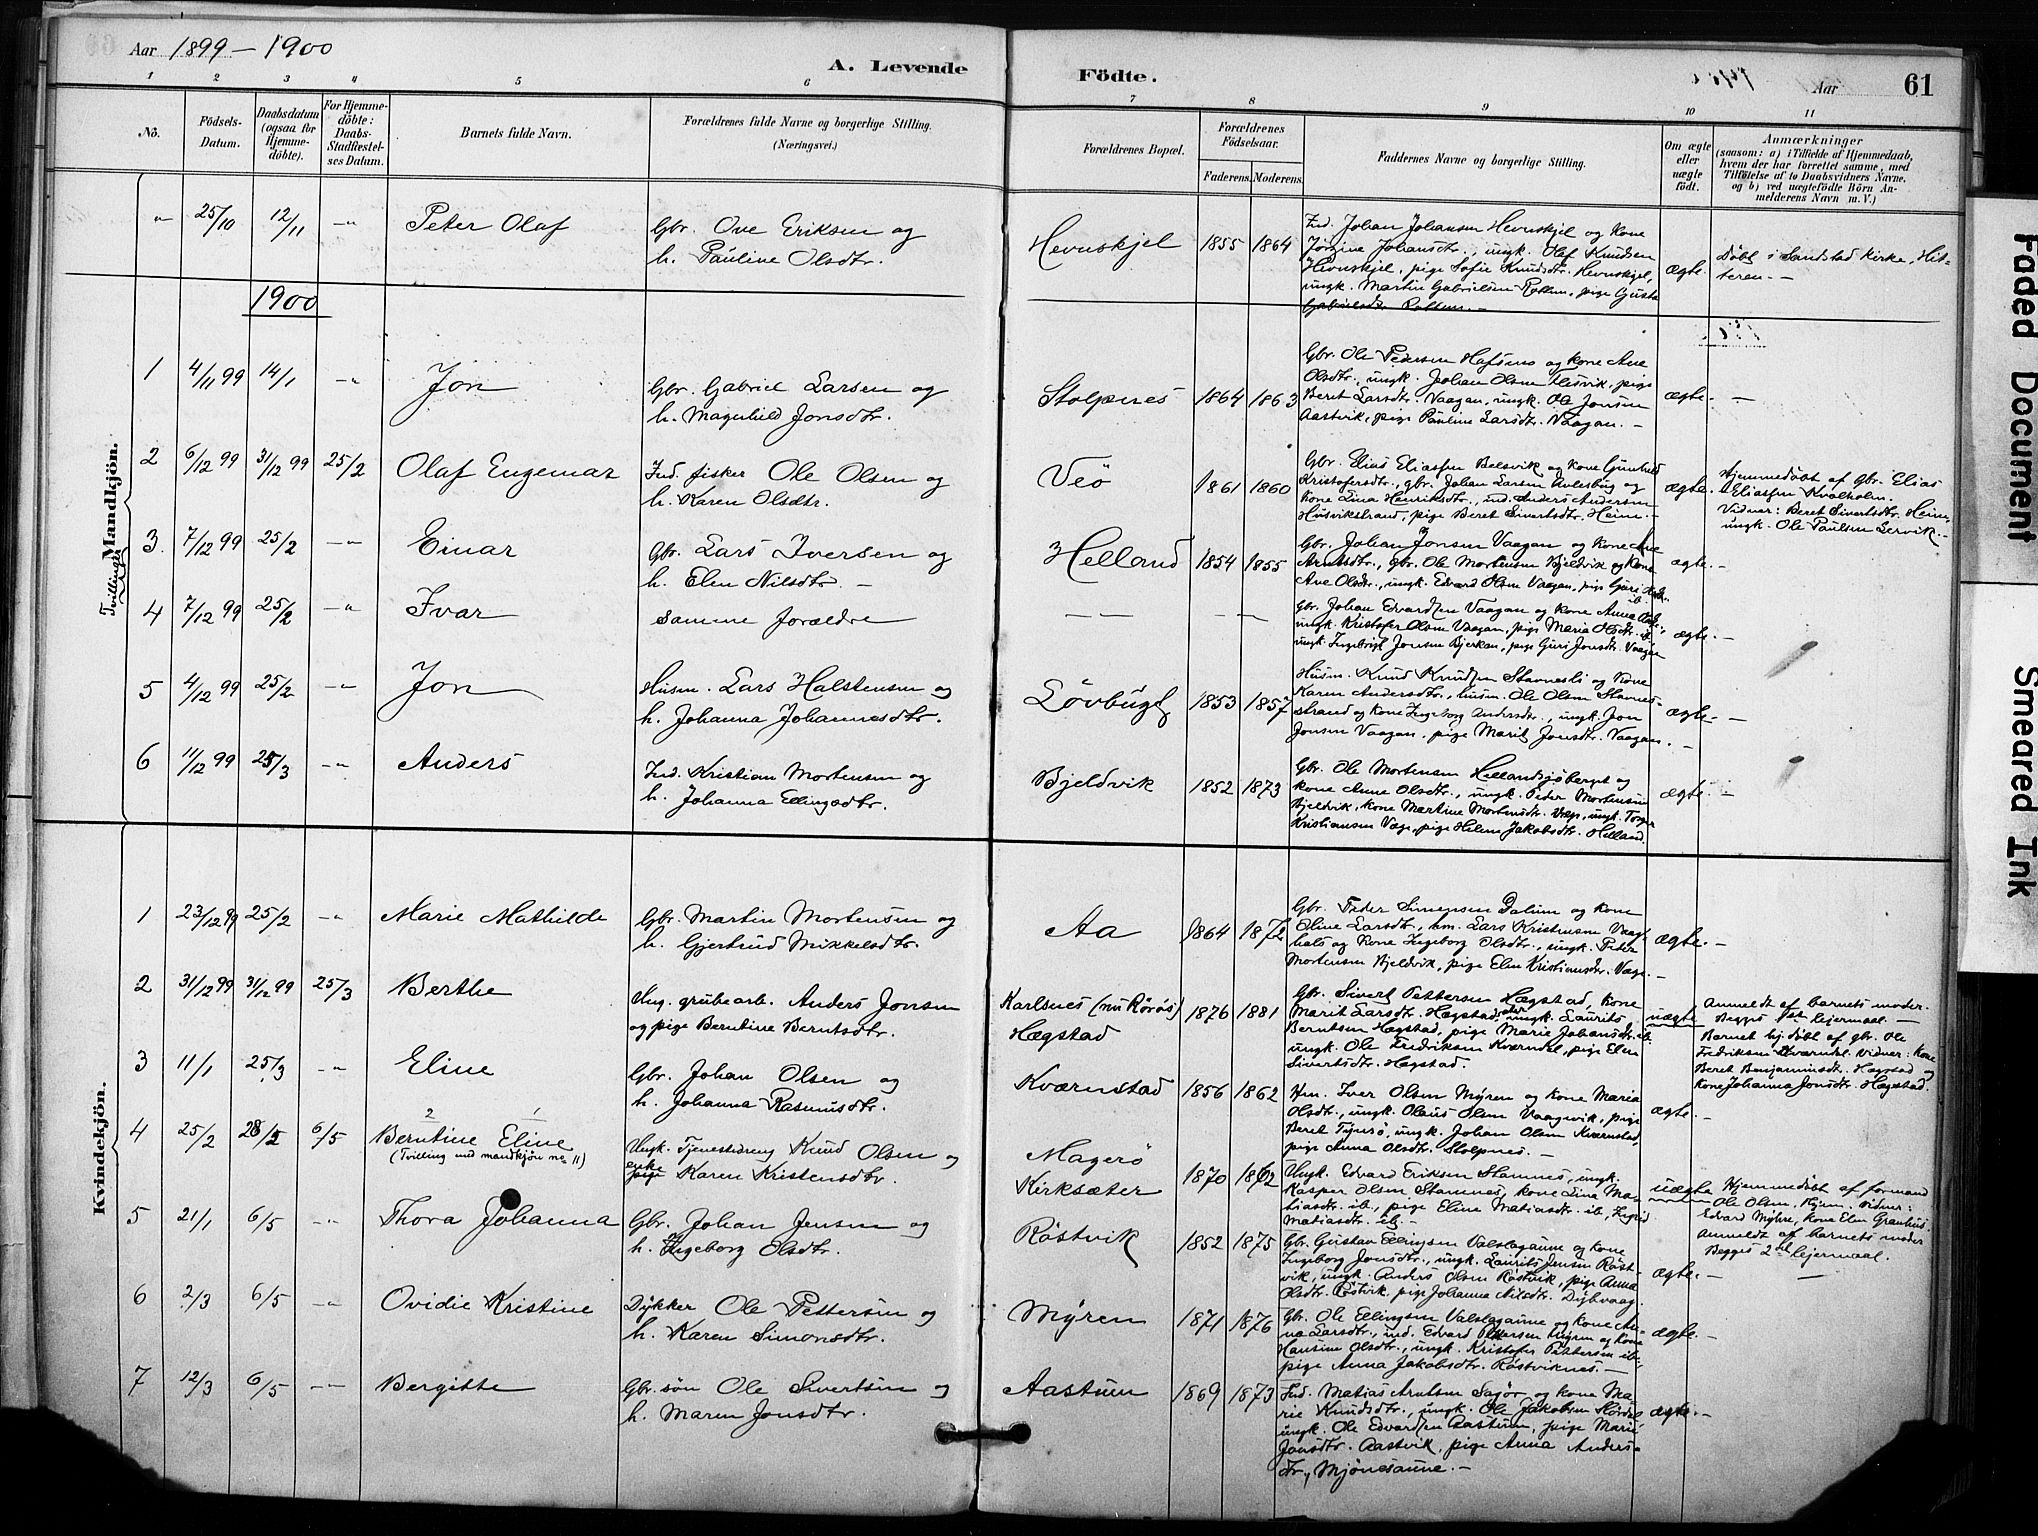 Aar 1899 – 1900
A. Levende Födte.
Aar 61
1 2 3 4 5 6 7 8 9 10 11
No. Födsels-Datum. Daabsdatum (ogsaa for Hjemme-döbte). For Hjemme-döbte: Daabs-Stadfæstel-ses Datum. Barnets fulde Navn. Forældrenes fulde Navne og borgerlige Stilling. (Næringsvei.)
Forældrenes Bopæl. Forældrenes Födselsaar. Faderens. Moderens. Faddernes Navne og borgerlige Stilling. Om ægte eller uægte födt. Anmærkninger
(saasom: a) i Tilfælde af Hjemmedaab,
hvem der har forrettet samme, med
Tilföielse af to Daabsvidners Navne.
og b) ved uægtefödte Börn An-
melderens Navn m. V.)
Mandkjön.
Tvillinger
-"- 25/10 12/11 -"- Peter Olaf Gbr. Ove Eriksen og
h. Pauline Olsdtr.
Hevnskjel 1855 1864
Ind. Johan Johansen Hevnskjel og kone
Jörgine Johansdtr., ungk. Olaf Knudsen
Hevnskjel, pige Sofie Knudsdtr. Hevnskjel,
ungk. Martin Gabrielsen Rottem, pige Gusta
Gabrielsdtr. Rottem. –
ægte.
Döbt i Sandstad kirke, Hit-
teren. –
1900
1 4/11 99 14/1 -"- Jon Gbr. Gabriel Larsen og
h. Magnhild Jonsdtr.
Stolpnes 1864 1863
Gbr. Ole Pedersen Hafsmo og kone Ane
Olsdtr., ungk. Johan Olsen Flesvik, pige
Beret Larsdtr. Vaagan, ungk. Ole Jonsen
Aastvik, pige Pauline Larsdtr. Vaagan. –
ægte. –
2 6/12 99 31/12 99 25/2 Olaf Engemar Ind. fisker Ole Olsen og
h. Karen Olsdtr.
Veö 1861 1860
Gbr. Elias Eliassen Belsvik og kone Gunhild
Kristofersdtr., gbr. Johan Larsen Aulesbug og
kone Lina Henriksdtr., ind. Anders Andersen
Husvikstrand, pige Beret Sivertsdtr. Heim. –
ægte.
Hjemmedöbt af gbr. Elias
Eliassen Kvalholm.
Vidner: Beret Sivertsdtr. Heim,
ungk. Ole Paulsen Lervik. –
3. 7/12 99 25/2 -"- Einar Gbr. Lars Iversen og
h. Elen Nilsdtr. –
Helland 1854 1855
Gbr. Johan Jonsen Vaagan og kone Ane
Arntsdtr., gbr. Ole Mortensen Bjeldvik og kone
Ane Olsdtr., ungk. Edvard Olsen Vaagan, pige Guri
ægte. –
4 7/12 99 25/2 -"- Ivar Samme forældre
– – – –
Gbr. Johan Edvardsen Vaagan og kone Anna
ungk. Kristofer Olsen Vaagan, pige Maria Olsdtr. ib.
ungk. Ingebrigt Jonsen Bjerkan, pige Guri Jonsdtr. Vaagan
ægte. –
5 4/12 99 25/2 -"- Jon Husm. Lars Halstensen og
h. Johanna Johannesdtr.
Lövbugt 1853 1857
Husm. Knud Knudsen Stavnesli og kone
Karen Andersdtr., husm. Ole Olsen Stavnes-
strand og kone Ingeborg Andersdtr., ungk. Jon
Jonsen Vaagan, pige Marit Jonsdtr. Vaagan. –
ægte. –
6 11/12 99 25/3 -"- Anders Ind. Kristian Mortensen og
h. Johanna Ellingsdtr.
Bjeldvik 1852 1873
Gbr. Ole Mortensen Hellandsjöberget og
kone Anne Olsdtr., ungk. Peder Mortensen
Bjeldvik, kone Martine Mortensdtr. Væge, ungk. Torger
Kristiansen Væge, pige Helene Jakobsdtr. Helland.
ægte. –
Kvindekjön.
1 23/12 99 25/2 -"- Marie Mathilde Gbr. Martin Mortensen og
h. Gjertrud Mikkelsdtr.
Aa 1864 1872
Gbr. Peder Simensen Dalum og kone
Eline Larsdtr., hm. Lars Kristensen Vaag-
hals og kone Ingeborg Olsdtr., ungk. Peter
Mortensen Bjeldvik, pige Elen Kristiansdtr. Væge. –
ægte. –
2 31/12 99 31/12 99 25/3 Berthe Ung. grubearb. Anders Jonsen
og pige Berntine Berntsdtr.
Karlsnes (nu Rörös) Hægstad 1876 1881
Gbr. Sivert Pettersen Hægstad, kone
Marit Larsdtr. Hægstad, ungk. Laurits
Berntsen Hægstad, pige Marie Johansdtr. ib.
ungk. Ole Fredriksen Kværndal, pige Elen
Sivertsdtr. Hægstad.
uægte
Anmeldt af barnets moder.
Begges 1ste lejermaal. –
Barnet hj. döbt af gbr. Ole
Fredriksen Kværndal. Vidner: kone
Beret Benjaminsdtr. Hægstad og
kone Johanna Jonsdtr. Hægstad.
3 11/1 25/3 -"- Eline Gbr. Johan Olsen og
h. Johanna Rasmusdtr.
Kværnstad 1856 1862
Hm. Iver Olsen Myren og kone Maria
Olsdtr., ungk. Olaus Olsen Vaagavik, pige
Beret Tynesö, ungk. Johan Olsen Kværnstad,
pige Anna Olsdtr. Stolpnes. –
ægte. –
4 25/2 28/2 6/5 Berntine Eline
(Tvilling med mandkjön no 11)
Ungk. Tjenestedreng Knud Olsen og
enke pige Karen Kristensdtr.
Magerö Kirksæter 1870 1862
Ungk. Edvard Eriksen Stamnes, ungk.
Kasper Olsen Stamnes, kone Lina Ma-
tiasdtr. ib., pige Eline Matiasdtr. ib., Ingrid
Matiasdtr. ib. –
uægte
Hjemmedöbt af formand
Ole Olsen, Hjem. Vidner:
Edvard Myhre, kone Elen Granhus.
Anmeldt af barnets moder
Begges 2det lejermaal.
5 21/1 6/5 -"- Thora Johanna Gbr. Johan Jensen og
h. Ingeborg Olsdtr.
Röstvik 1852 1875
Gbr. Gustav Ellingsen Valslagaune og kone
Ingeborg Jonsdtr., ungk. Laurits Jensen Röst-
vik, ungk. Anders Olsen Röstvik, pige Anna
Olsdtr. Röstvik, pige Johanna Nilsdtr. Dybvaag.
ægte. – –
6 2/3 6/5 -"- Ovidie Kristine Dykker Ole Pettersen og
h. Karen Simonsdtr.
Myren 1871 1876
Gbr. Ole Ellingsen Valslagaune og kone An-
na Larsdtr., ind. Edvard Pettersen Myren og kone
Hansine Olsdtr., ungk. Kristofer Pettersen ib.
pige Anna Jakobsdtr. Röstviknes. –
ægte. –
7 12/3 6/5 -"- Bergitte Gbr. sön Ole Sivertsen og
h. Maren Jonsdtr.
Aastum 1869 1873
Ind. Matias Arntsen Sagör og kone Ma-
rie Knudsdtr., ungk. Ole Jakobsen Slördal,
ungk. Ole Edvardsen Aastum, pige Marit
Jonsdtr. Aastvik, pige Anna Anders-
dtr., Mjönesaune. –
ægte. –
Faded Document
Smeared Ink